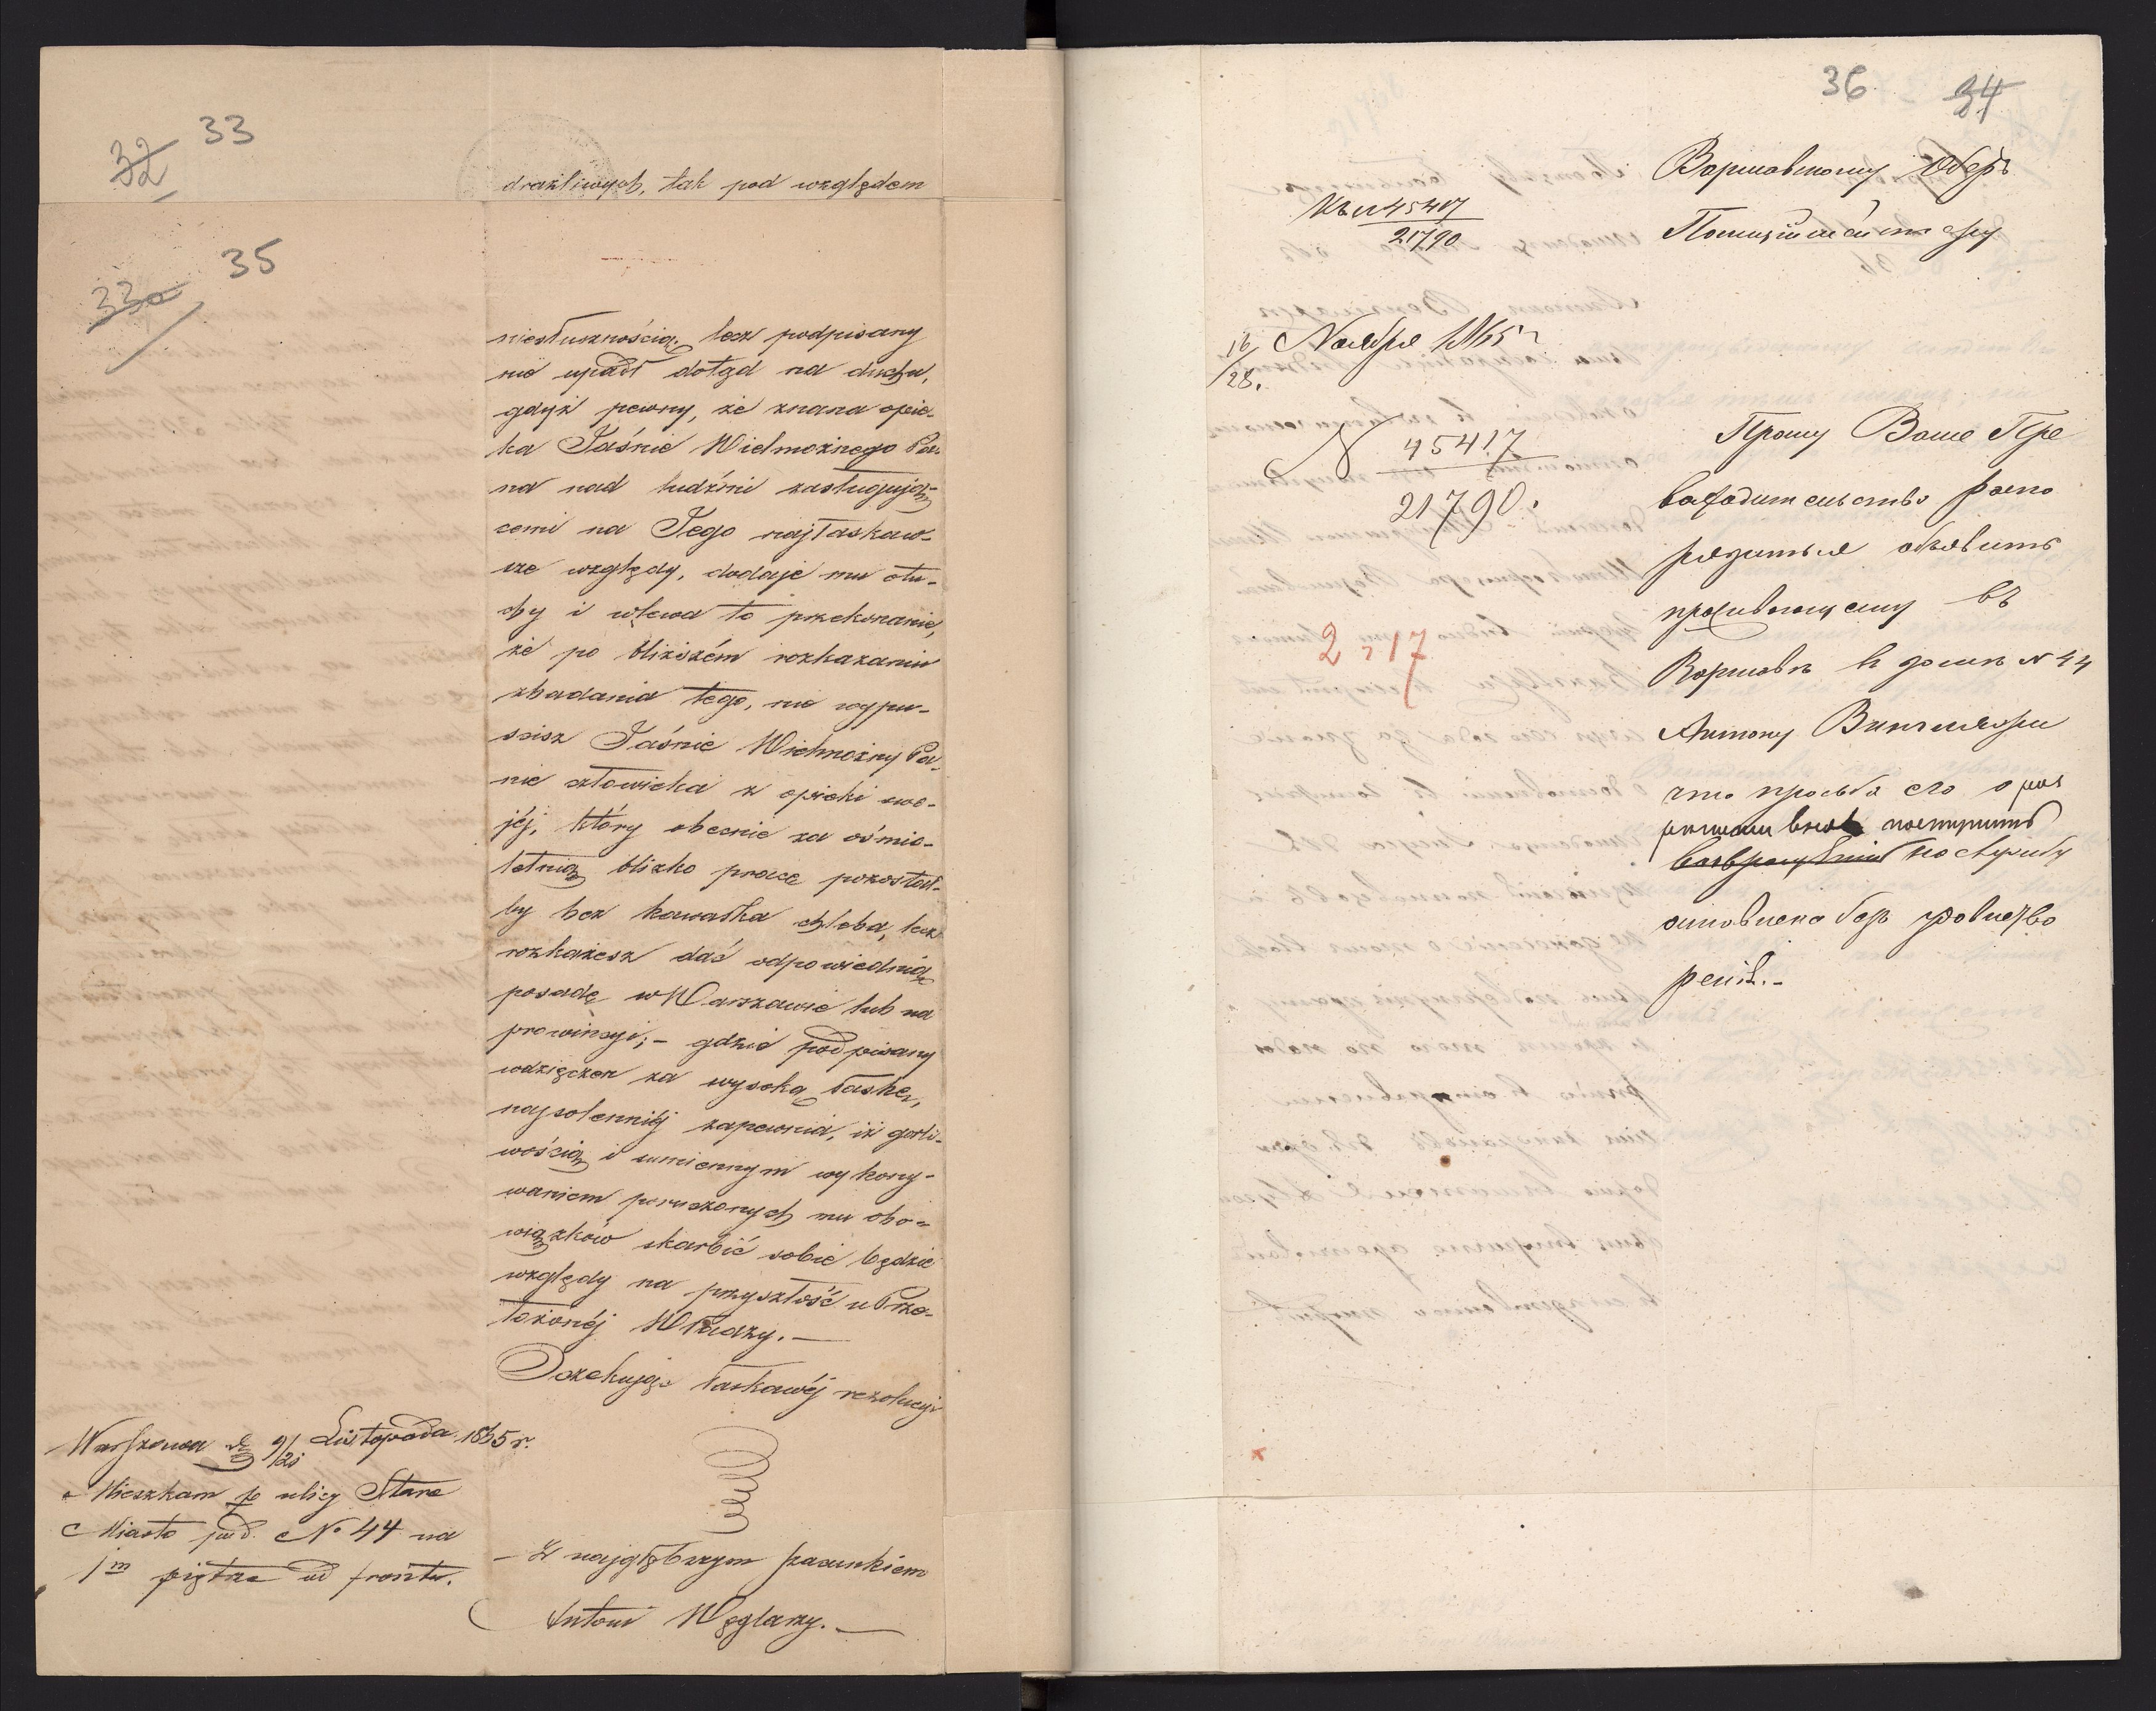 32 33
drażliwych, tak pod względem
33a 35
niesłusznością, lecz podpisany
nie upadł dotąd na duchu,
gdyż pewny, że znana opie-
ka Jaśnie Wielmożnego Pa-
na nad ludźmi zasługują-
cemi na Jego najłaskaw-
sze względy, dodaje mu otu-
chy i wlewa to przekonanie,
że po bliższém rozkazaniu
zbadania tego, nie wypu-
scisz Jaśnie Wielmożny Pa-
nie człowieka z opieki swo-
jéj, który obecnie za ośmio-
letnią blizko pracę pozostał-
by bez kawałka chleba, lecz
rozkażesz dać odpowiednią
posadę w Warszawie lub na
prowincyi; - gdzie podpisany
wdzięczen za wysoką łaskę,
najsolenniéj zapewnia, iż gorli-
wością i umiennym wykony-
waniem poruczonych mu obo-
wiązków skarbić sobie będzie
względy na przyszłość u Prze-
łożonéj Władzy. —
Oczekując łaskawéj rezolucyi
Warszawa d. 9/21 Listopada 1865 r.
Mieszkam po ulicy Stare
Miasto pod No 44 na
1m piętrze od frontu.
— Z najgłębszym szacunkiem
Antoni Węglarzy. —
36 34
Варшавскому Оберъ
Полиціймейстеру
Къ N 45417
21790
16/28. Ноября 1865 г
N 45417
21790.
Прошу Ваше Пре
восходительство распо
рядиться объявить
проживающему въ
Варшавѣ въ домѣ N 44
Антону
2 г 17
что просьба его о раз
рѣшеніи вновь поступить
на службу
оставлена безъ удовлетво
ренія.-